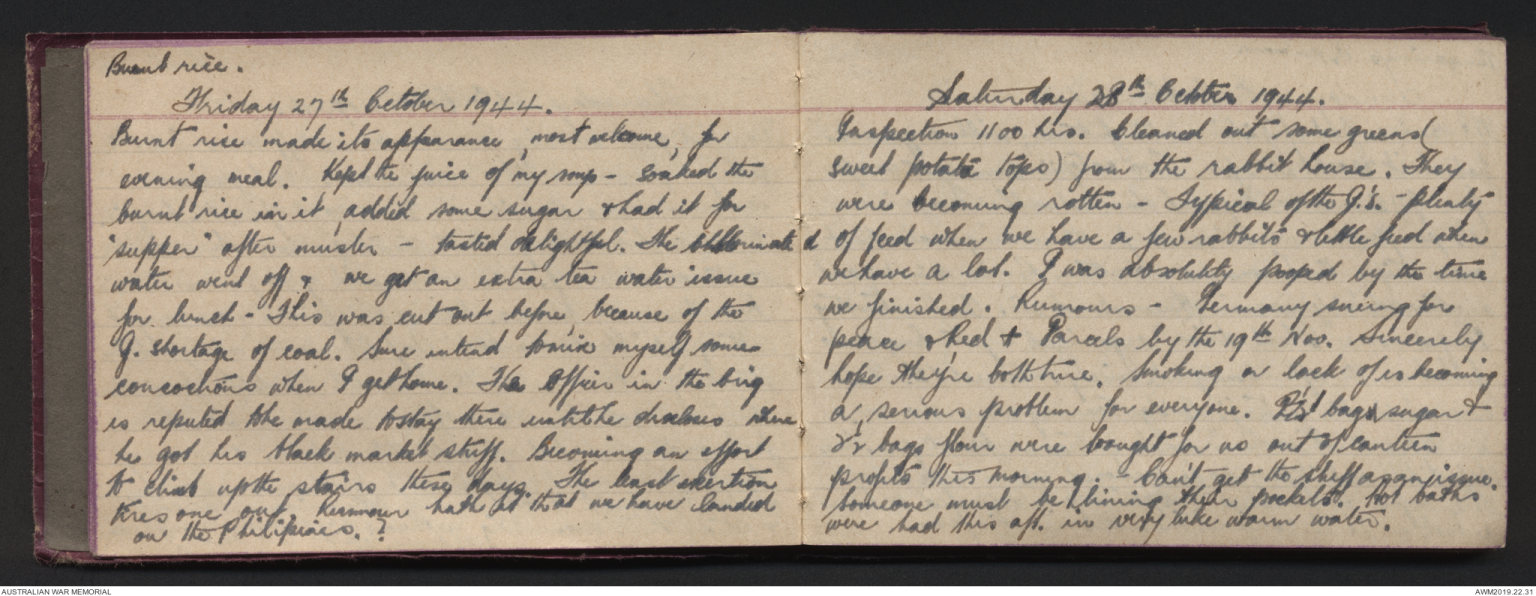 Burnt rice.
Friday 27th October 1944.
Burnt rice made its appearance, most welcome, for
evening meal. Kept the juice of my soup - soaked the
burnt rice in it, added some sugar & had it for
"supper" after muster - tasted delightful. The chlorinated
water went off & we get an extra tea water issue
for lunch - This was cut out before, because of the
J. shortage of coal. Sure intend to mix myself some
concoctions when I get home. The Officer in the brig
is reputed to be made to stay there until he discloses where
he got his black market stuff. Becoming an effort
to climb up the stairs these days. The least exertion
tires one out. Rumour hath it that we have landed
on the Philipines. ?
Saturday 28th October 1944.
Inspection 1100 hrs. Cleaned out some greens (
sweet potato tops) from the rabbit house. They
were becoming rotten - Typical of the J's. - plenty
of feed when we have a few rabbits & little feed when
we have a lot. I was absolutely pooped by the time
we finished. Rumours - Germany suing for
peace & Red + Parcels by the 19th Nov. Sincerely
hope they're both true. Smoking or lack of is becoming
a serious problem for everyone. bags sugar &
2½ bags flour were bought for us out of canteen
profits this morning. - Can't get the stuff again issue.
Someone must be lining their pockets. Hot baths
were had this aft. in very luke warm water.
AUSTRALIAN WAR MEMORIAL
AWM2019.22.31